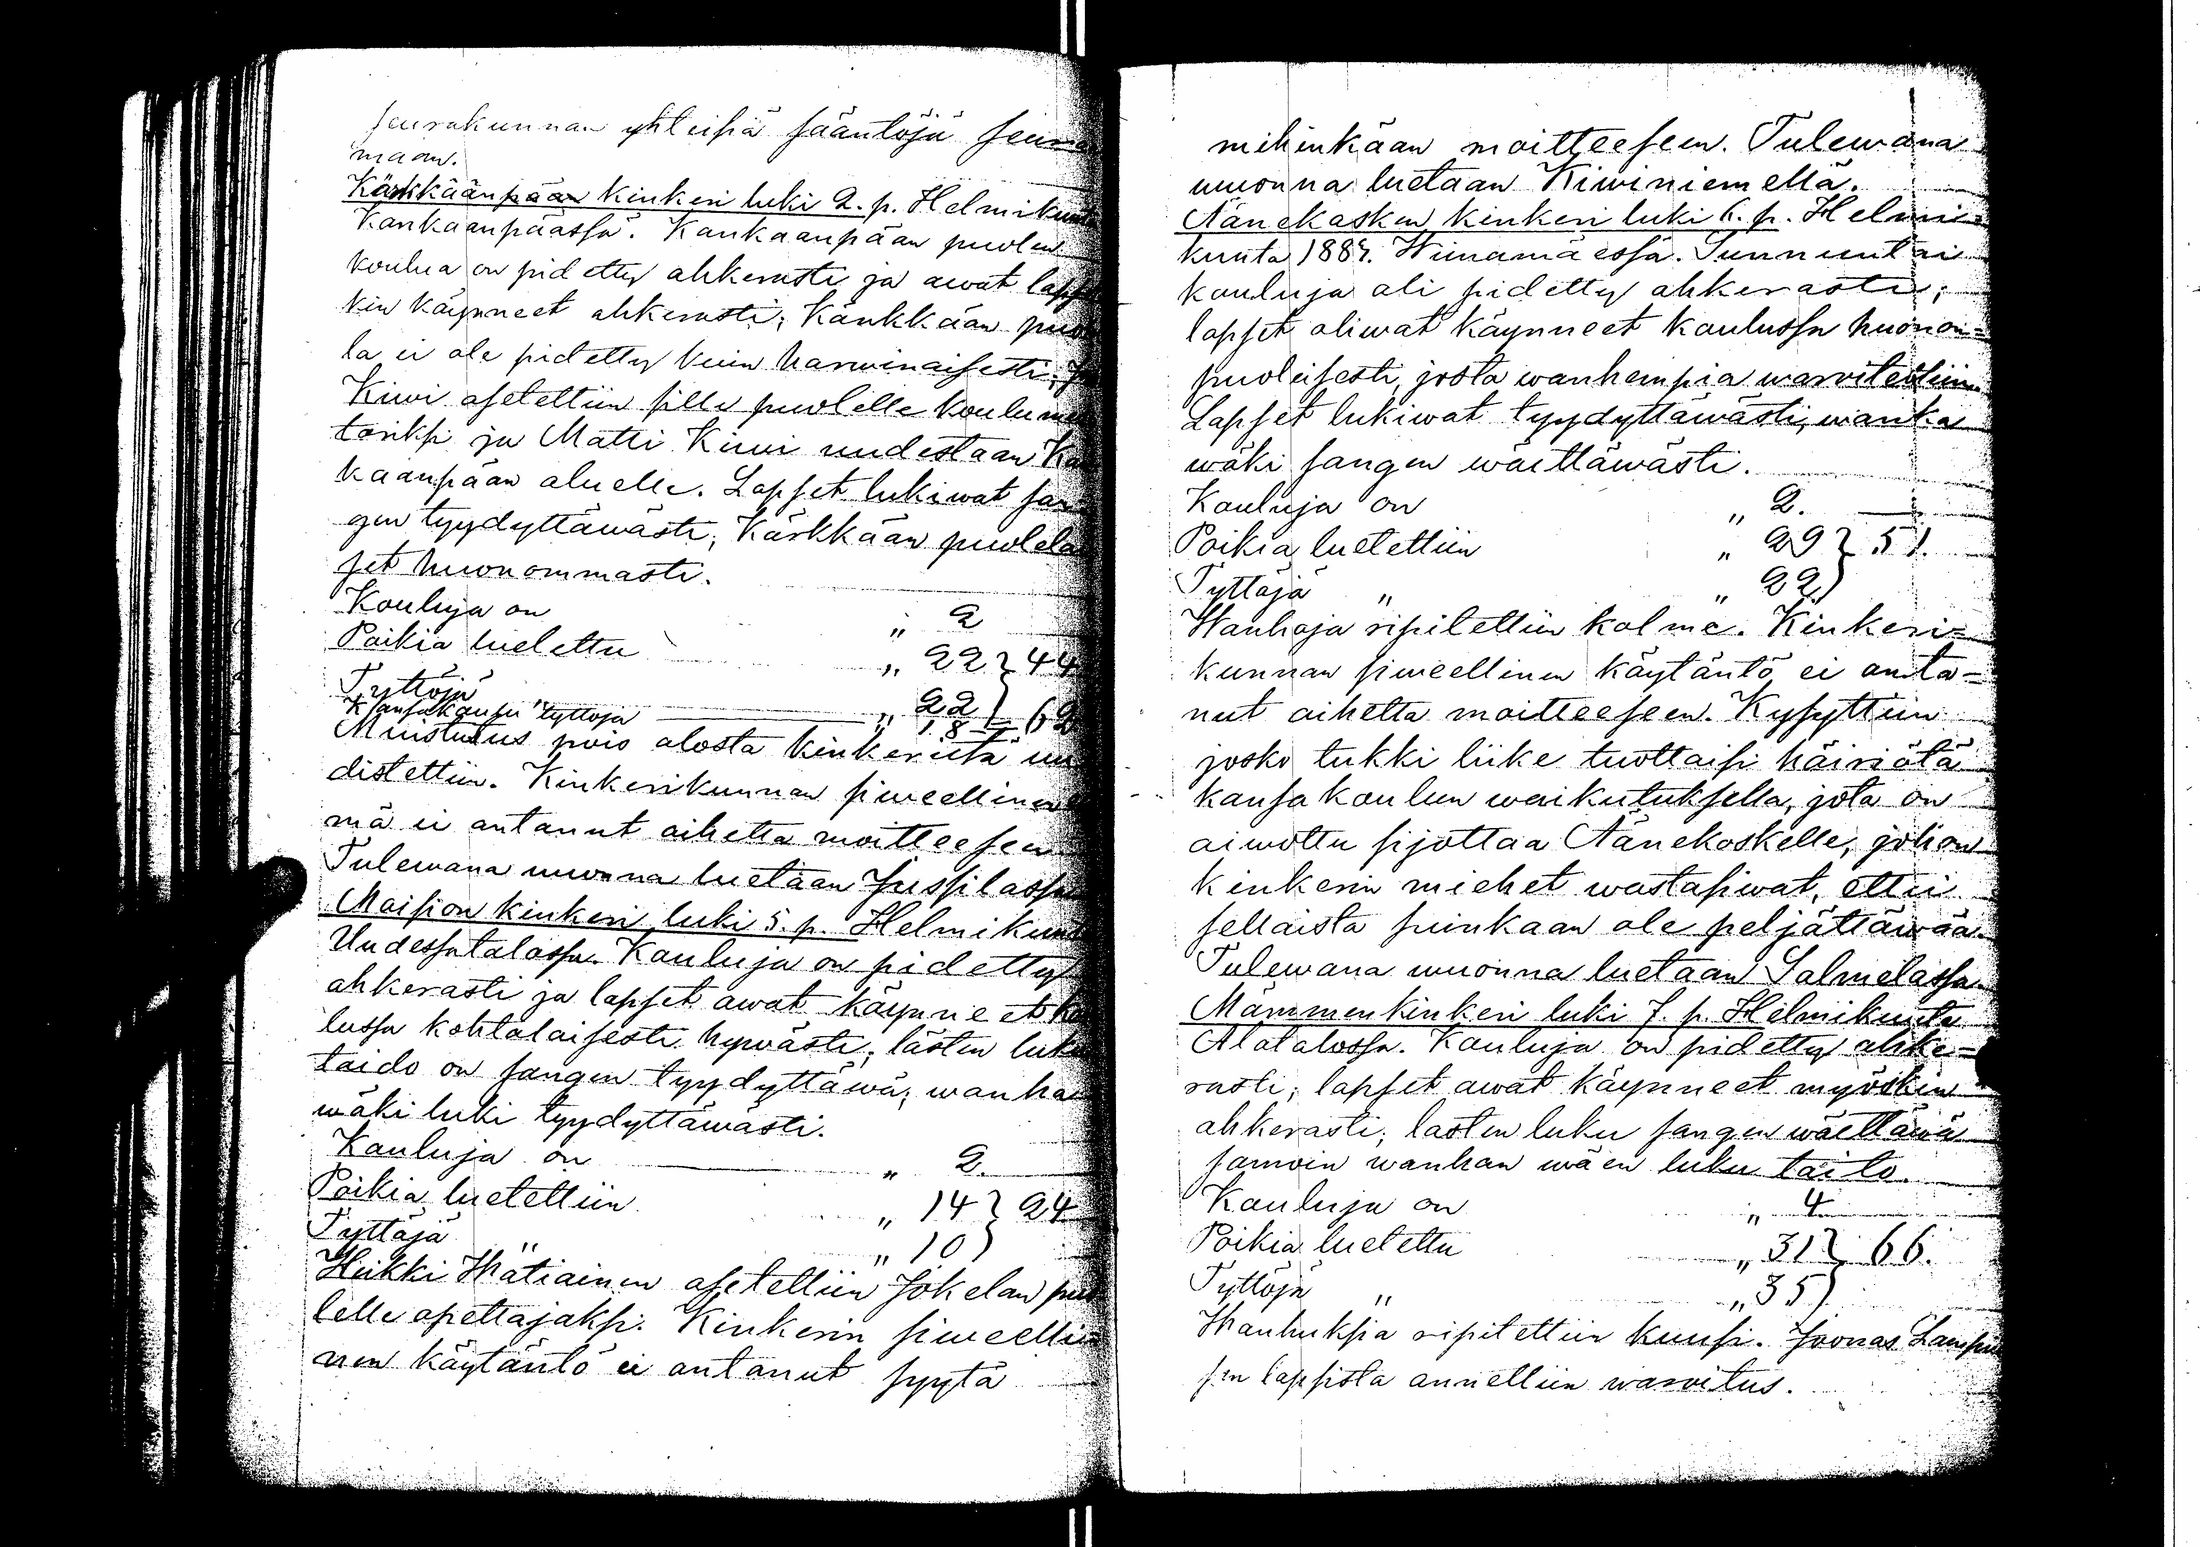 seurakunnan yhteisiä sääntöjä seuraa
maan.
Kärkkäänpään kinkeri luki 2. p. Helmikuuta
Kankaanpäässä. Kankaanpään puolen
koulua on pidetty ahkerasti ja owat lapse
kin käynneet ahkerasti; Kärkkään puo
la ei ole pidetty kuin harwinaisesti;
Kiwi asetettiin sille puolelle koulumes
tariksi ja Matti Kiwi uudestaan Kan
kaanpään aluelle. Lapset lukiwat san
gen tyydyttäwästi, Kärkkään puolela
set huonommasti.
Kouluja on „ 2
Poikia luetettu „ 22 } 44
Tyttöjä „ 22
Kansakoulu tyttöjä „ 18 62
Muistutus pois olosta kinkeristä uu
distettiin. Kinkerikunnan siweellinen
mä ei antanut aihetta moitteeseen
Tulewana wuonna luetaan Jussilassa
Maision kinkeri luki 5. p. Helmikuuta
Uudessatalossa. Kouluja on pidetty
ahkerasti ja lapset owat käynneet kou
lussa kohtalaisesti hywästi, lästen luku
taido on sangen tyydyttäwä; wanha
wäki luki tyydyttäwästi.
Kouluja on „ 2.
Poikia luetettiin „ 14 } 24
Tyttöjä „ „ 10
Heikki Hätiainen asetettiin Jokelan puo
lelle opettajaksi. Kinkerin siweelli
nen käytäntö ei antanut syytä
mihinkään moitteeseen. Tulewana
wuonna luetaan Kiwiniemellä.
Äänekosken kinkeri luki 6. p. Helmi=
kuuta 1884. Wiinamäessä. Sunnuntai
kouluja oli pidetty ahkerasti;
lapset oliwat käynneet koulussa huonon=
puoleisesti, josta wanhempia waroitettiin
Lapset lukiwat tyydyttäwästi, wanha
wäki sangen wälttäwästi.
Kouluja on „ 2.
Poikia luetettiin „ 29 } 51.
Tyttöjä „ „ 22
Wanhoja ripitettiin kolme. Kinkeri=
kunnan siweellinen käytäntö ei anta=
nut aihetta moitteeseen. Kysyttiin
josko tukki liike tuottaisi häiriötä
kansakoulun waikutuksella, jota on
aiwottu sijottaa Äänekoskelle, johon
kinkerin miehet wastasiwat, ettei
sellaista suinkaan ole peljättäwää.
Tulewana wuonna luetaan Salmelassa.
Mämmenkinkeri luki 7. p. Helmikuuta
Alatalossa. Kouluja on pidetty ahke=
rasti; lapset owat käynneet myöskin
ahkerasti; lasten luku sangen wälttäwä
samoin wanhan wäen luku taito.
Kouluja on „ 4
Poikia luetettu „ 31 } 66.
Tyttöjä „ „ 35
Wanhuksia ripitettiin kuusi. Joonas
sen lapsista annettiin waroitus.